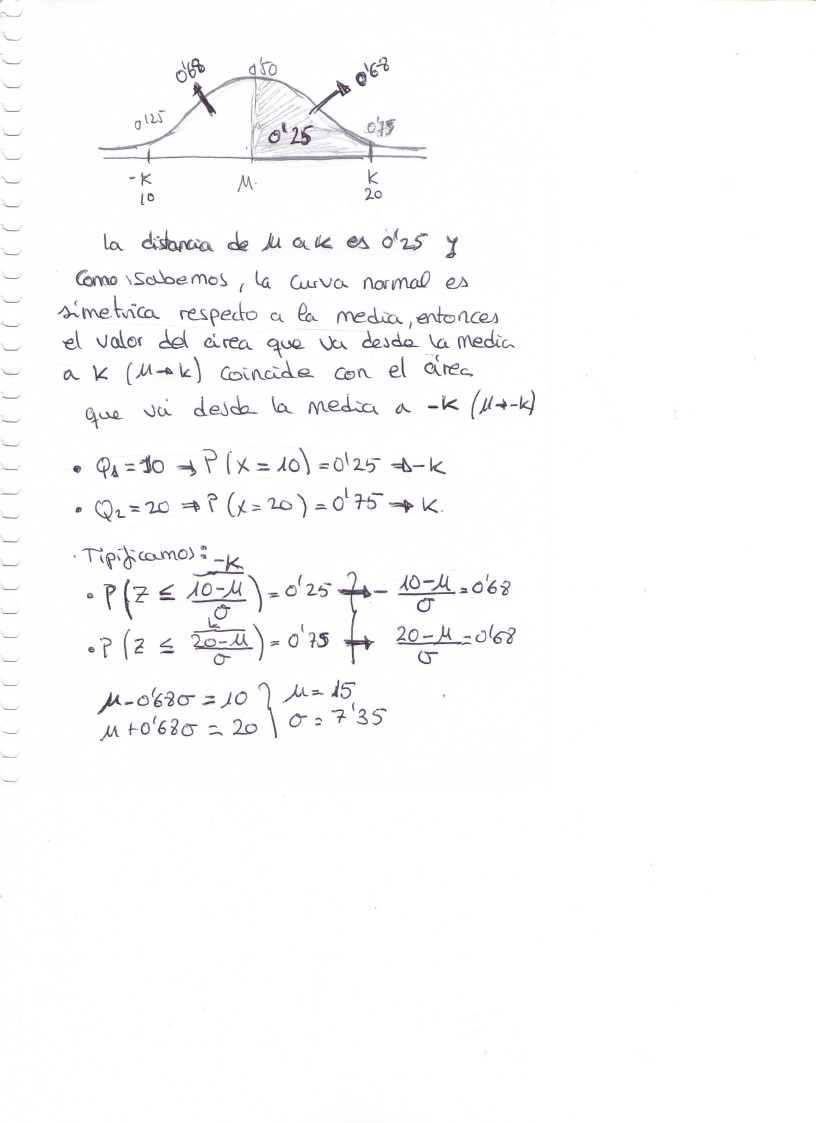 0'68 0'50 0'68
0'25 0'25 0'75
-K μ K
10 20
La distancia de μ a K es 0'25 y
como sabemos, la curva normal es
simetrica respecto a la media, entonces
el valor del área que va desde la media
a K (μ→K) coincide con el área
que vá desde la media a -K (μ→-K)
• Q₁ = 10 → P(X = 10) = 0'25 → -K
• Q₂ = 20 ⇒ P(X = 20) = 0'75 → K.
· Tipificamos: -K
• P(Z ≤ (10-μ)/σ) = 0'25 → - (10-μ)/σ = 0'68
K
• P(Z ≤ (20-μ)/σ) = 0'75 → (20-μ)/σ = 0'68
μ - 0'68σ = 10 } μ = 15
μ + 0'68σ = 20 } σ = 7'35